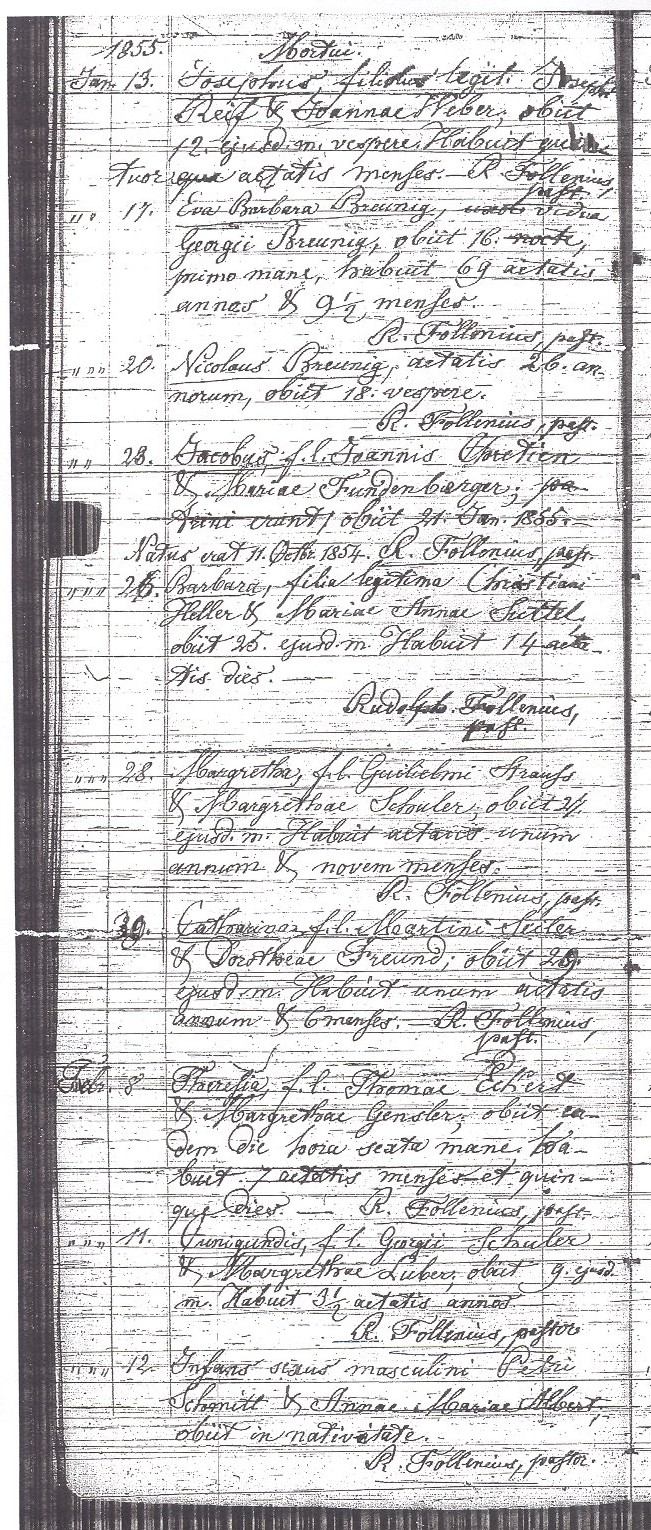 1855. Mortui.
Jan. 13. Josephus, filius legit. Joseph.
Reif & Joannae Weber, obiit
12. ejusd. m. vespere. Habuit qua
tuor aetatis menses. — R. Follenius,
past.
" " 17. Eva Barbara Breunig, uxor vidua
Georgii Breunig, obiit 16. nocte,
primo mane, habuit 69 aetatis
annos & 9 1/2 menses.
R. Follenius, past.
" " " 20. Nicolaus Breunig, aetatis 26. an-
norum, obiit 18. vespere.
R. Follenius, past.
" " 23. Jacobus, f. l. Joannis Chretien
& Mariae Fundenbaerger; pa-
trini erant, obiit 21. Jan. 1855. —
Natus erat 11. Octbr. 1854. R. Follenius, past.
" " " 26. Barbara, filia legitima Christiani
Heller & Mariae Annae Suttel,
obiit 25. ejusd. m. Habuit 14 aeta-
tis dies. —
Rudolph. Follenius,
past.
" " " 28. Margretha, f. l. Guilielmi Strauss
& Margrethae Schuler, obiit 27.
ejusd. m. Habuit aetatis unum
annum & novem menses.
R. Follenius, past.
Catharina, f. l. Martini Seiler
& Dorotheae Freund; obiit 29.
ejusd. m. Habuit unum aetatis
annum & 6 menses. — R. Follenius,
past.
Febr. 8. Theresia, f. l. Thomae Eckert
& Margrethae Gensler, obiit ea-
dem die hora sexta mane. Ha-
buit 7 aetatis menses et quin-
que dies. — R. Follenius, past.
" " " 11. Cunigundis, f. l. Georgii Schuler
& Margrethae Luber, obiit 9. ejusd.
m. Habuit 3 1/2 aetatis annos
R. Follenius, pastor
" " " 12. Infans sexus masculini Petri
Schmitt & Annae Mariae Albert,
obiit in nativitate.
R. Follenius, pastor.